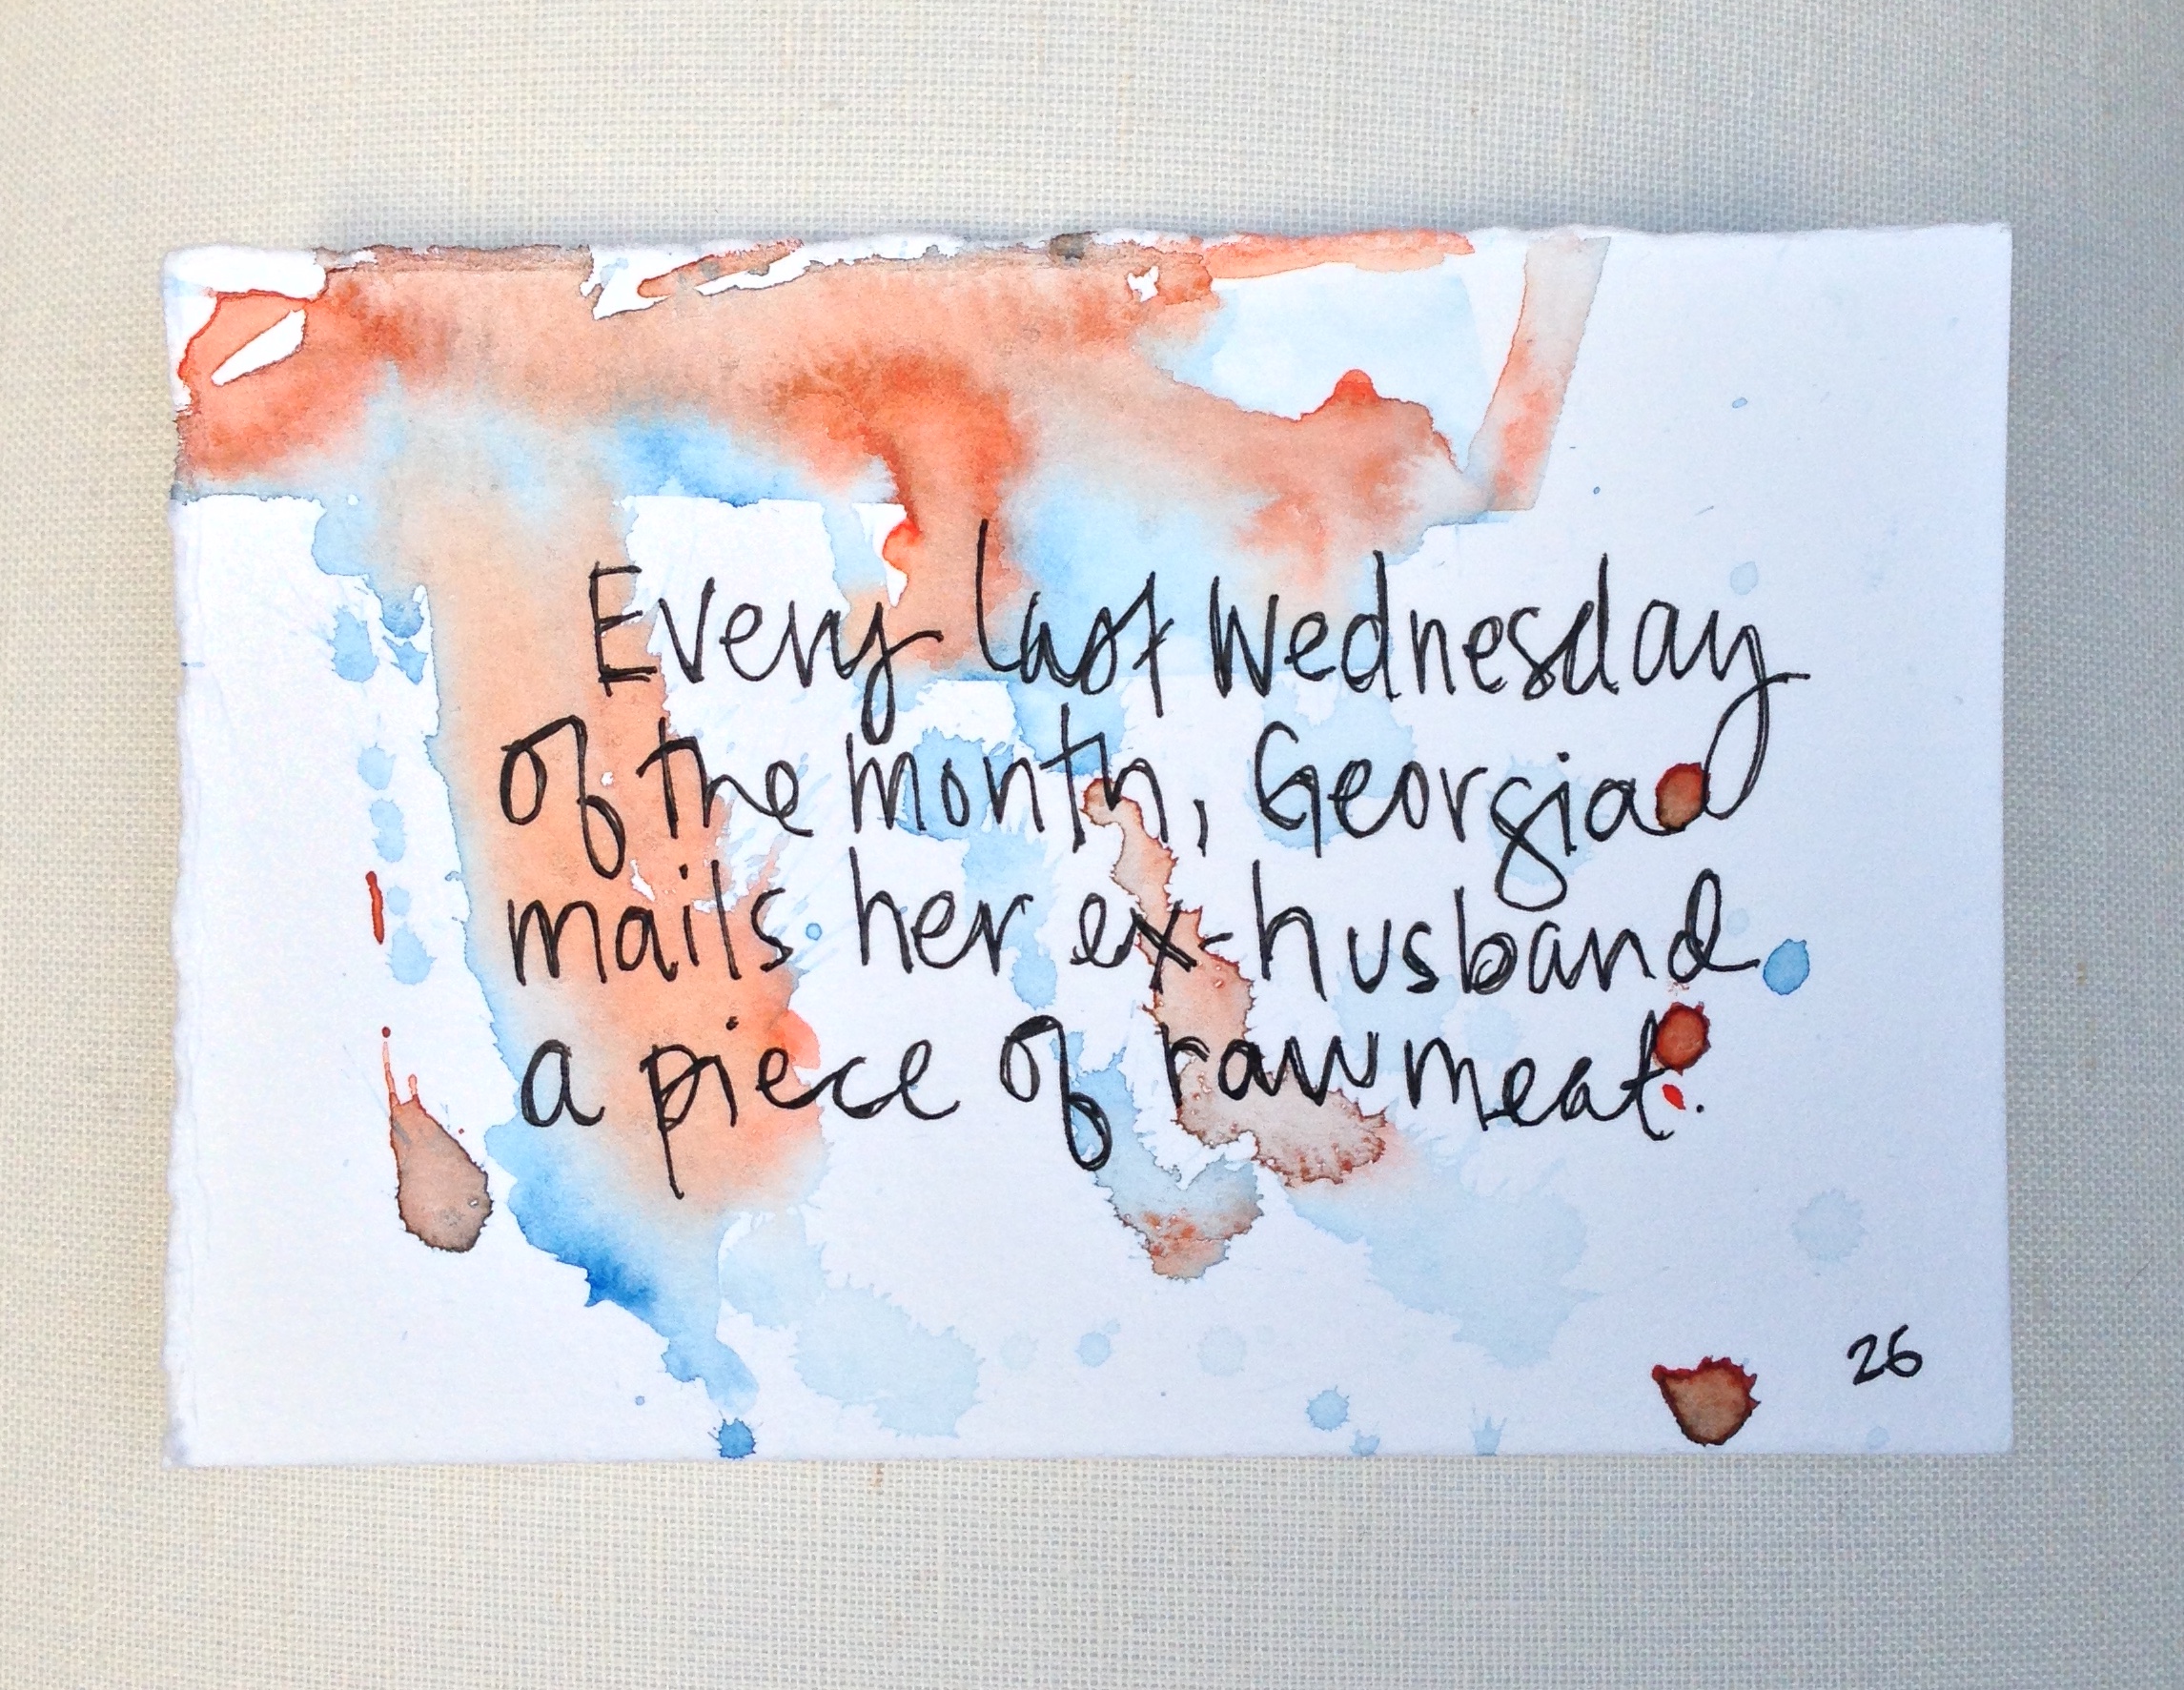 Every last Wednesday
of the month, Georgia
mails her ex-husband
a piece of raw meat.
26